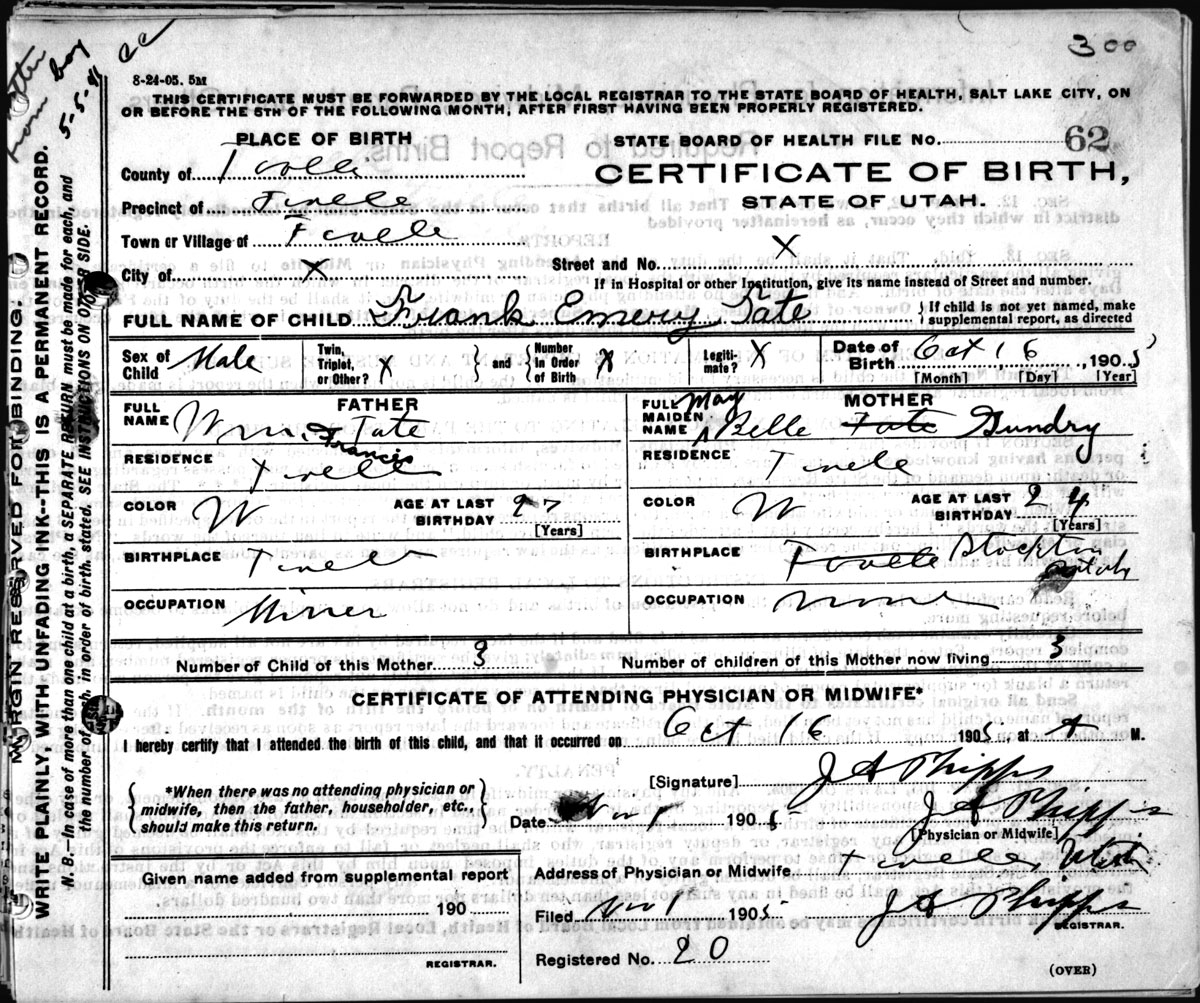 300
8-24-05. 5M
THIS CERTIFICATE MUST BE FORWARDED BY THE LOCAL REGISTRAR TO THE STATE BOARD OF HEALTH, SALT LAKE CITY, ON
OR BEFORE THE 5TH OF THE FOLLOWING MONTH, AFTER FIRST HAVING BEEN PROPERLY REGISTERED.
PLACE OF BIRTH
STATE BOARD OF HEALTH FILE NO. 62
County of Tooele
CERTIFICATE OF BIRTH,
Precinct of Tooele
STATE OF UTAH.
Town or Village of Tooele
City of X
Street and No. X
If in Hospital or other Institution, give its name instead of Street and number.
FULL NAME OF CHILD Frank Emery Tate {If child is not yet named, make
supplemental report, as directed
Sex of Child Male Twin, Triplet, or Other? X } and { Number In Order of Birth X Legiti-mate? X Date of Birth Oct 16 1905
[Month] [Day] [Year]
FATHER
FULL NAME Wm. Francis Tate
RESIDENCE Tooele
COLOR W AGE AT LAST BIRTHDAY 27
[Years]
BIRTHPLACE Tooele
OCCUPATION Miner
MOTHER
FULL MAIDEN NAME May Belle Tate Gundry
RESIDENCE Tooele
COLOR W AGE AT LAST BIRTHDAY 24
[Years]
BIRTHPLACE Tooele Stockton Utah
OCCUPATION none
Number of Child of this Mother 3 Number of children of this Mother now living 3
CERTIFICATE OF ATTENDING PHYSICIAN OR MIDWIFE*
I hereby certify that I attended the birth of this child, and that it occurred on Oct 16 1905 at A M.
{*When there was no attending physician or
midwife, then the father, householder, etc.,
should make this return.}
[Signature] J A Phipps
Date Nov 1 1905 J A Phipps
[Physician or Midwife]
Given name added from supplemental report
190
REGISTRAR.
Address of Physician or Midwife Tooele Utah
Filed Nov 1 1905 J A Phipps
REGISTRAR.
Registered No. 20
(OVER)
MARGIN RESERVED FOR BINDING.
WRITE PLAINLY, WITH UNFADING INK--THIS IS A PERMANENT RECORD.
N. B.—In case of more than one child at a birth, a SEPARATE RETURN must be made for each, and
the number of each, in order of birth, stated. SEE INSTRUCTIONS ON OTHER SIDE.
5-5-41